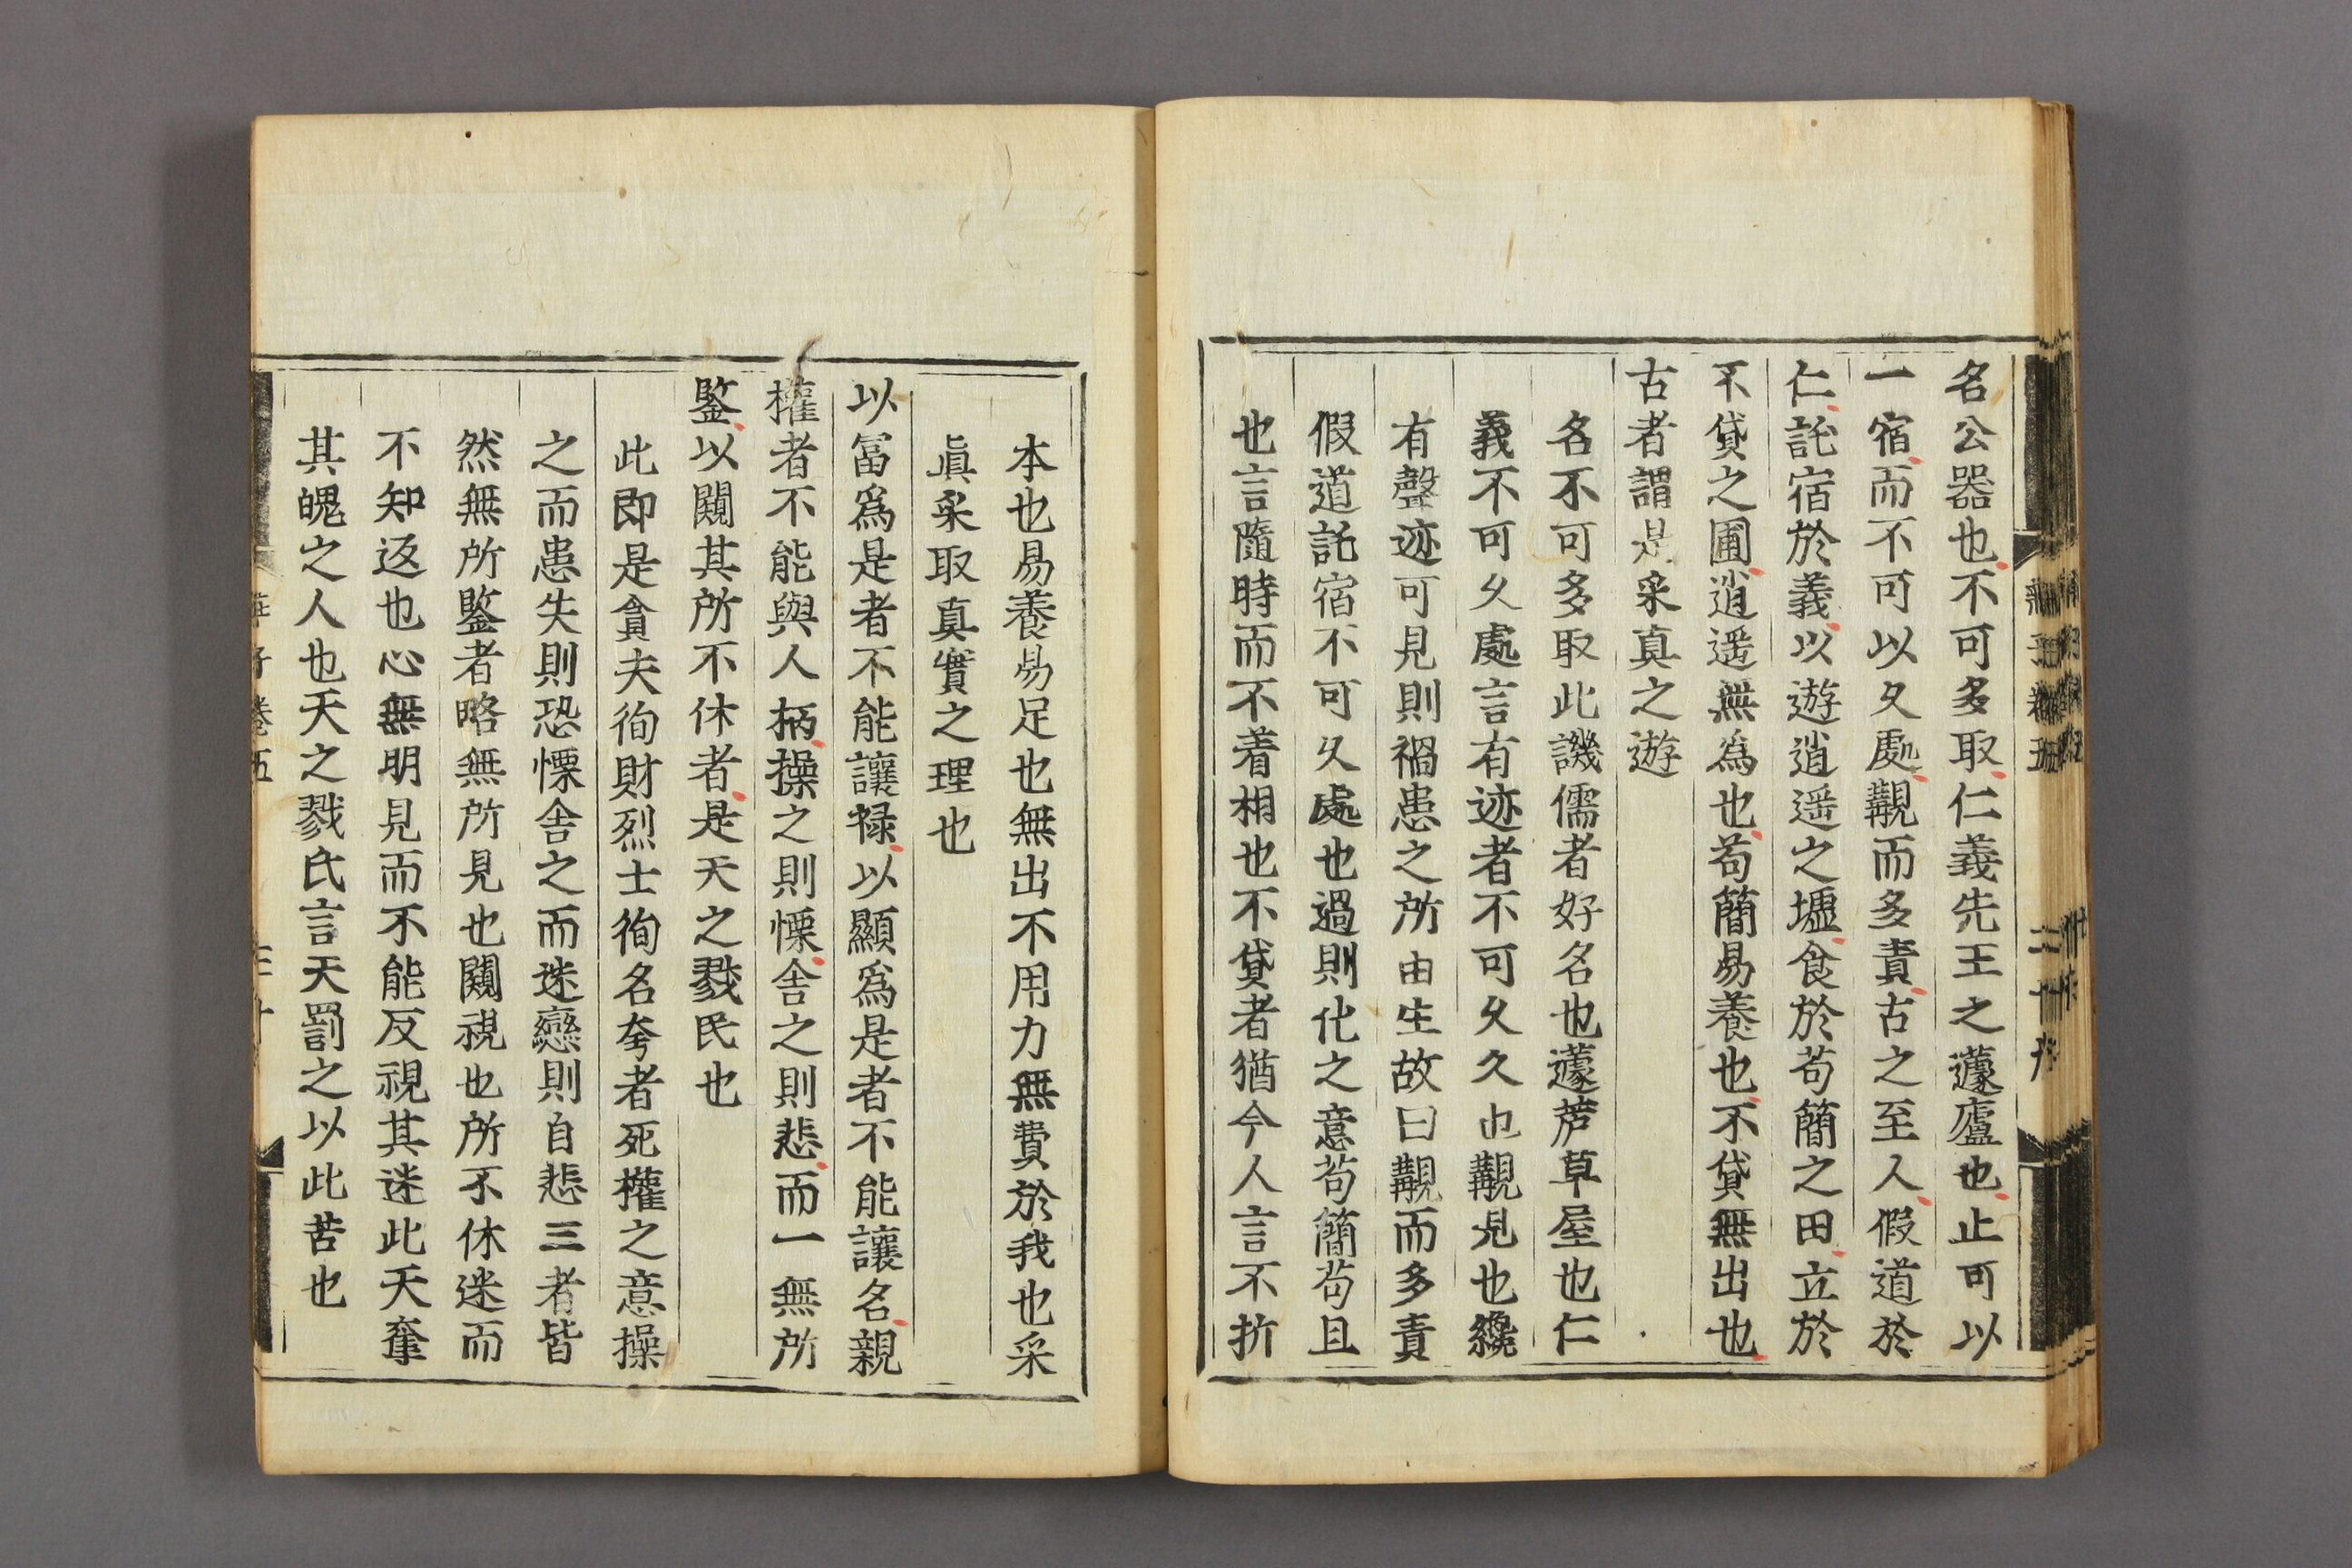 名公器也不可多取仁義先王之蘧廬也止可以
一宿而不可以久處覯而多責古之至人假道於
仁託宿於義以遊逍遥之墟食於苟簡之田立於
不貸之圃逍遥無爲也苟簡易養也不貸無出也
古者謂是采真之遊
名不可多取此譏儒者好名也蘧芦草屋也仁
義不可久處言有迹者不可久久也覯見也纔
有聲迹可見則禍患之所由生故曰覯而多責
假道託宿不可久處也過則化之意苟簡苟且
也言隨時而不着相也不貸者猶今人言不折
本也易養易足也無出不用力無費於我也采
眞采取真實之理也
以富爲是者不能讓禄以顯爲是者不能讓名親
權者不能與人柄操之則慄舍之則悲而一無所
鍳以闚其所不休者是天之戮民也
此即是貪夫徇財烈士徇名夸者死權之意操
之而患失則恐慄舍之而迷戀則自悲三者皆
然無所鍳者略無所見也闚視也所不休迷而
不知返也心無明見而不能反視其迷此天奪
其魄之人也天之戮民言天罰之以此苦也
莊子卷五